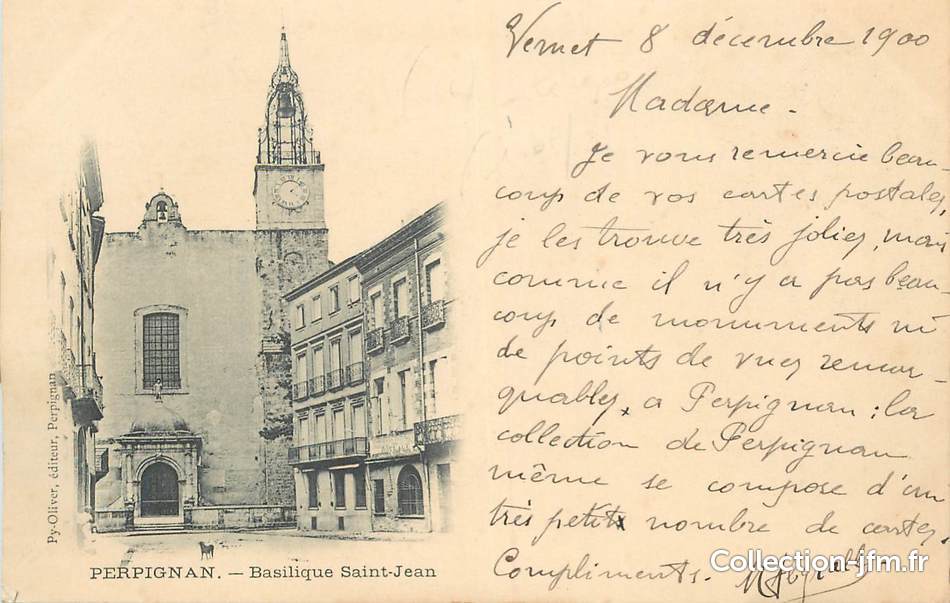 Vernet 8 décembre 1900
Madame.
Je vous remercie beau-
coup de vos cartes postales,
je les trouve très jolies, mais
comme il n'y a pas beau-
coup de monuments ni
de points de vues remar-
quables, a Perpignan : la
collection de Perpignan
même se compose d'un
très petit nombre de cartes.
Compliments.
Py-Oliver, éditeur, Perpignan
PERPIGNAN. — Basilique Saint-Jean
Collection-jfm.fr